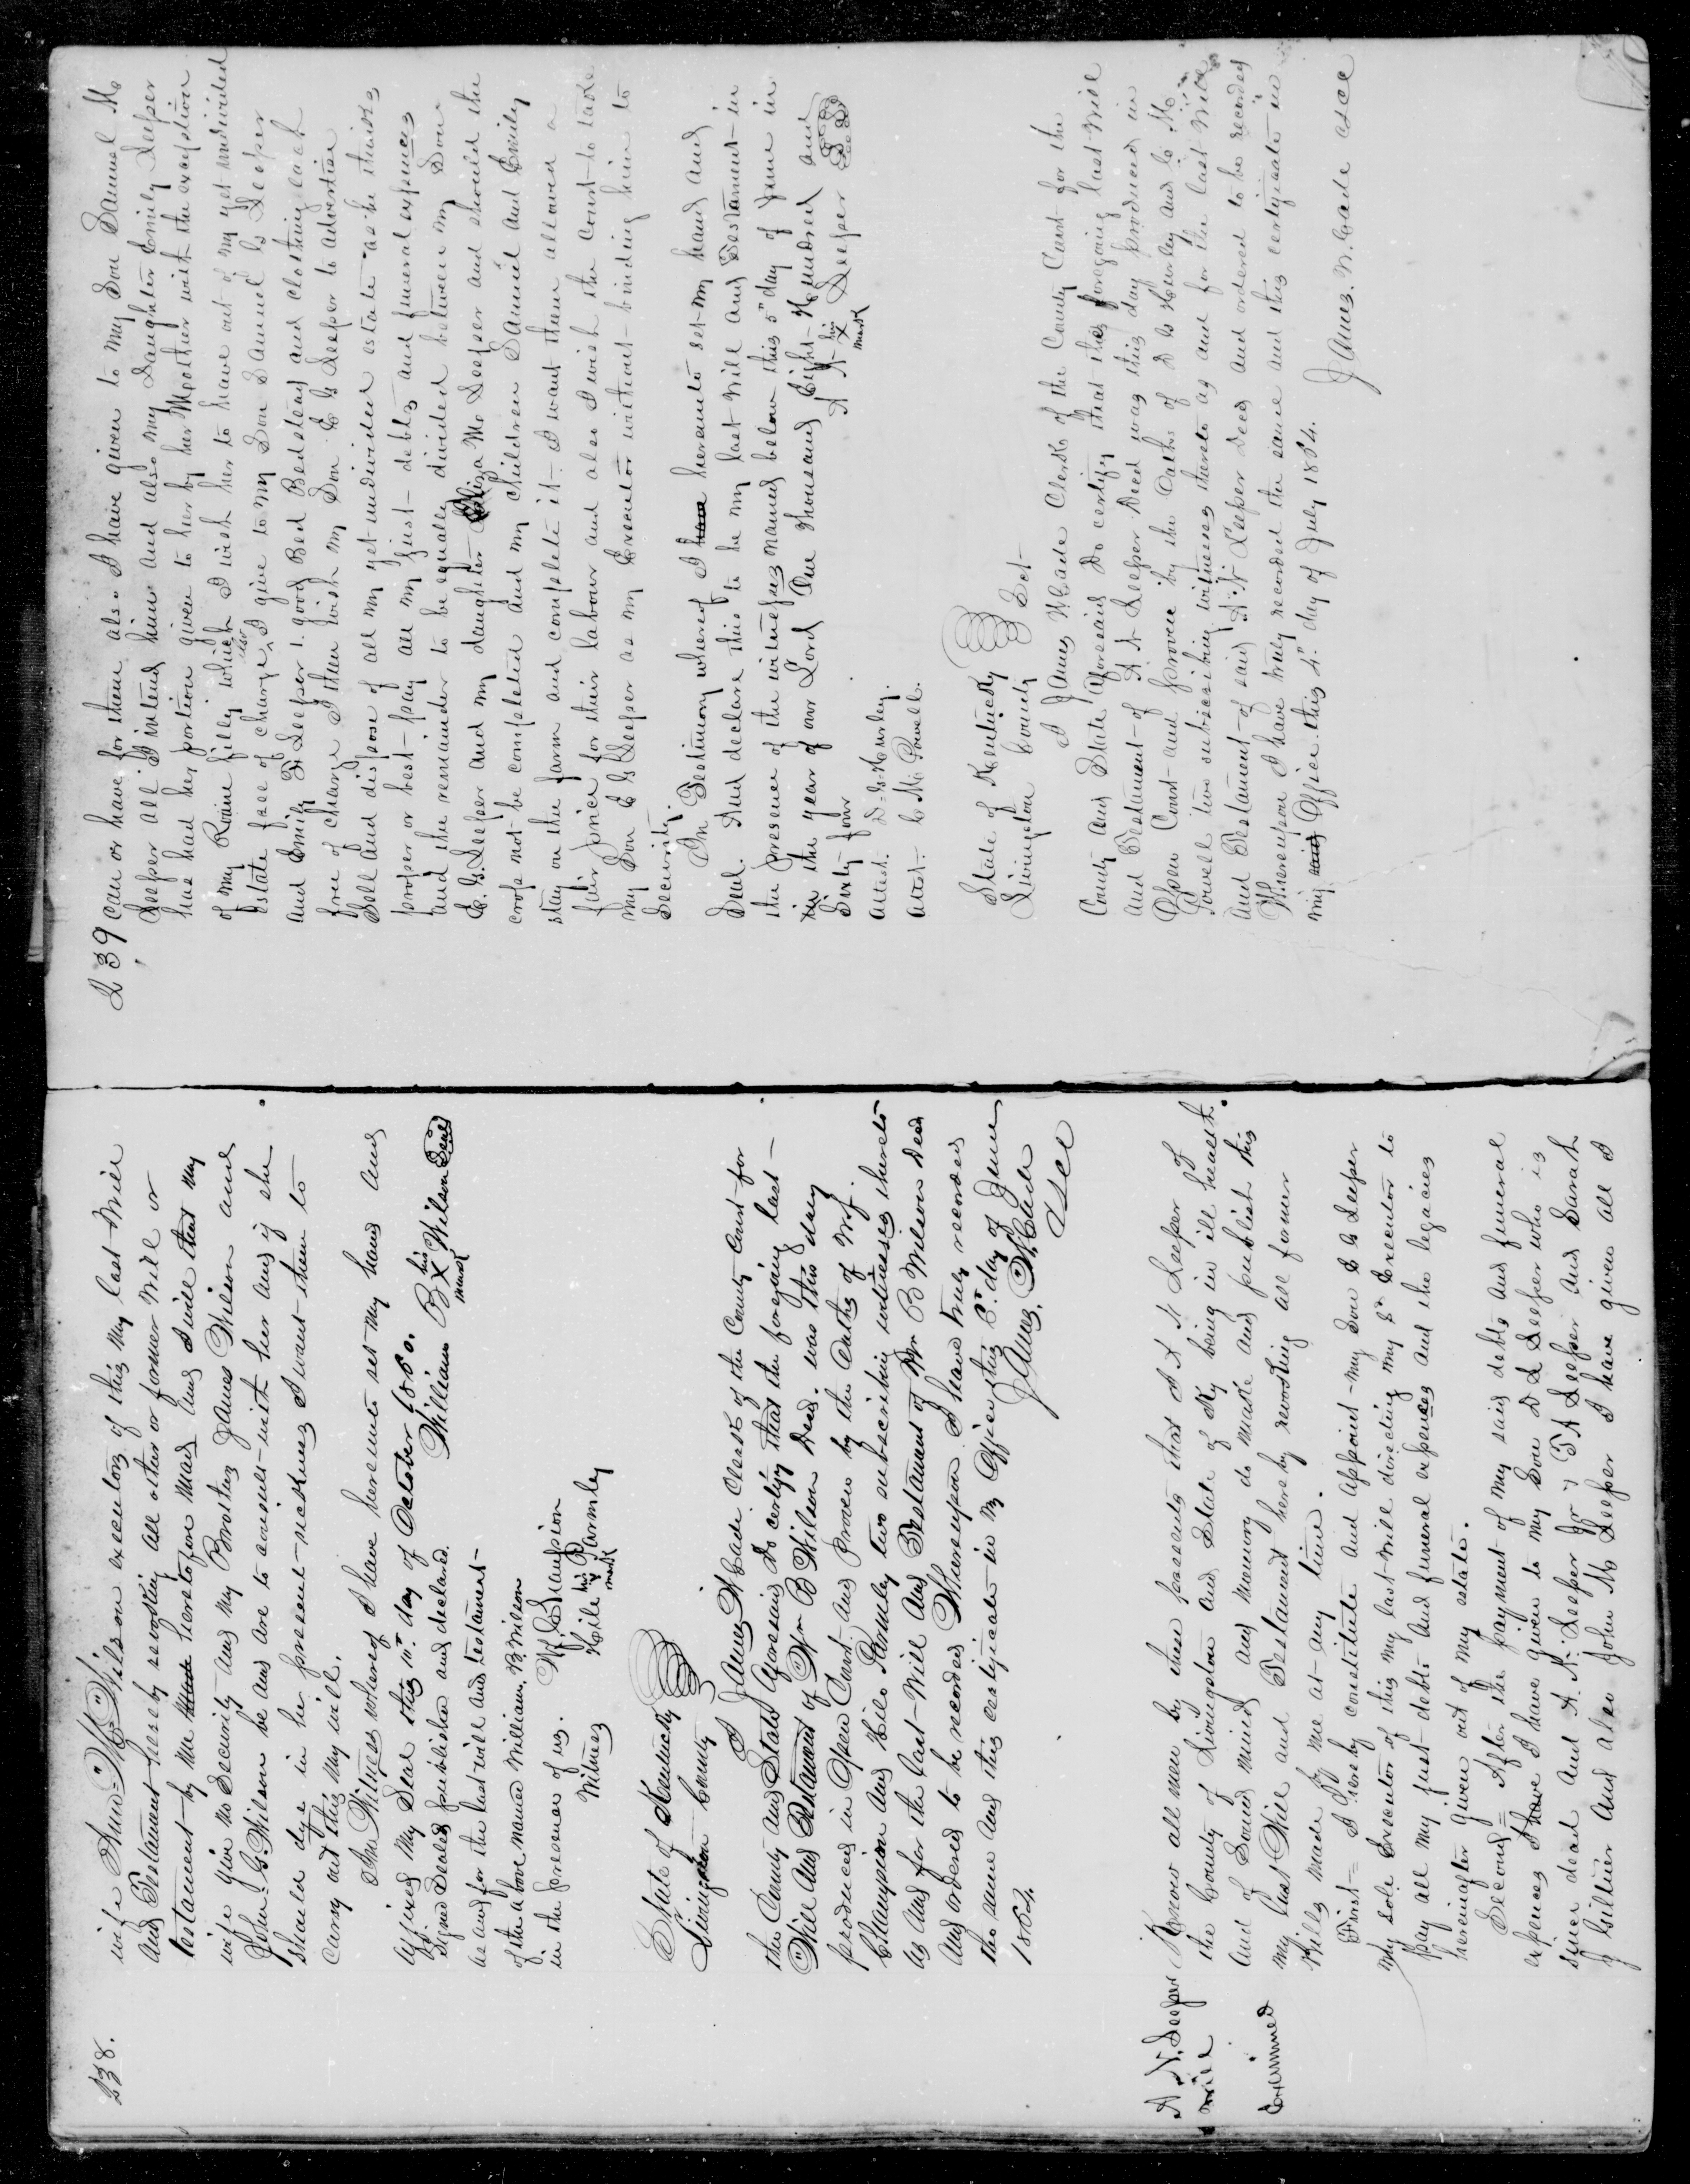 238.
wife Ann W Wilson executors of this my last Will
and Testament hereby revoking all other or former Will or
testament by me heretofore Maid And I will that my
wife give no Security And my Brother James Wilson and
John G. Wilson be And are to consult with her And if she
should dye in her present sickness I want them to
carry out this my will.
In Witness whereof I have hereunto set my hand And
affixed my Seal this 10th day of October 1860.
William B his X mark Wilson Seal
Signed Sealed published and declared
as and for the last will and testament
of the above named William B. Wilson
in the presence of us.
W. Champion
Witness
Hile his X mark Parmley
State of Kentucky
Livingston County
I James W Cade Clerk of the County Court for
the County and State Aforesaid do certify that the foregoing last
Will And Testament of Wm B Wilson Decd. was this day
produced in Open Court And Proven by the Oaths of W.
Champion And Hile Parmley two subscribing witnesses thereto
As And for the last Will And Testament of Wm B Wilson Decd
And ordered to be recorded Whereupon I have truly recorded
the same And this certificate in my Office this day of June
1864.
James W Cade
A N. Leeper
Will
Examined
Know all men by these presents that I A N Leeper of
the County of Livingston And State of Ky being in ill health
And of Sound mind and memory do make And publish this
my last Will and Testament hereby revoking all former
Wills made by me at any time.
First = I hereby constitute and appoint my Son E G Leeper
my sole Executor of this my last Will directing my Sd Executor to
pay all my just debts And funeral expences And the legacies
hereinafter given out of my estate.
Second = After the payment of my said debts and funeral
expences I have I have given to my Son D L Leeper who is
since dead And A. N. Leeper Jr & T A Leeper And Sarah
J Collier And also John M Leeper I have given all I
239
can or have for them also I have given to my Son Samuel M
Leeper all I intend him And also my Daughter Emily Leeper
has had her portion given to her by her Mother with the exception
of my Roane filly which I wish her to have out of my yet undivided
estate free of charge, I give to my Son Samuel G Leeper
and Emily F Leeper 1. good Bed Bedstead and Clothing each
free of charge I then wish my Son E G Leeper to advertise
Sell And dispose of all my yet undivided estate as he thinks
proper or best pay all my just debts and funeral expences
and the remainder to be equally divided between my Son
E. G. Leeper and my daughter Eliza M. Leeper and should the
crops not be completed and my children Samuel and Emily
stay on the farm and complete it I want them allowed a
fair price for their labour and also I wish the Court to take
my Son E G Leeper as my Executor without binding him to
Security.
In Testimony whereof I have hereunto set my hand and
Seal. And declare this to be my last Will And Testament in
the presence of the witnesses named below this 5th day of June in
in the year of our Lord One Thousand Eight Hundred and
Sixty four
A N his X mark Leeper Seal
Attest. D. G. Hurley.
Attest. C. M. Powell.
State of Kentucky
Livingston County Sct
I James W Cade Clerk of the County Court for the
County and State Aforesaid Do certify that the foregoing last Will
and Testament of A N Leeper Decd was this day produced in
Open Court and proven by the Oaths of D G Hurley and C M
Powell two subscribing witnesses thereto as and for the last Will
and Testament of said A. N. Leeper Decd and ordered to be recorded
Whereupon I have truly recorded the same and this certificate in
my said Office this 4th day of July 1864.
James. W. Cade